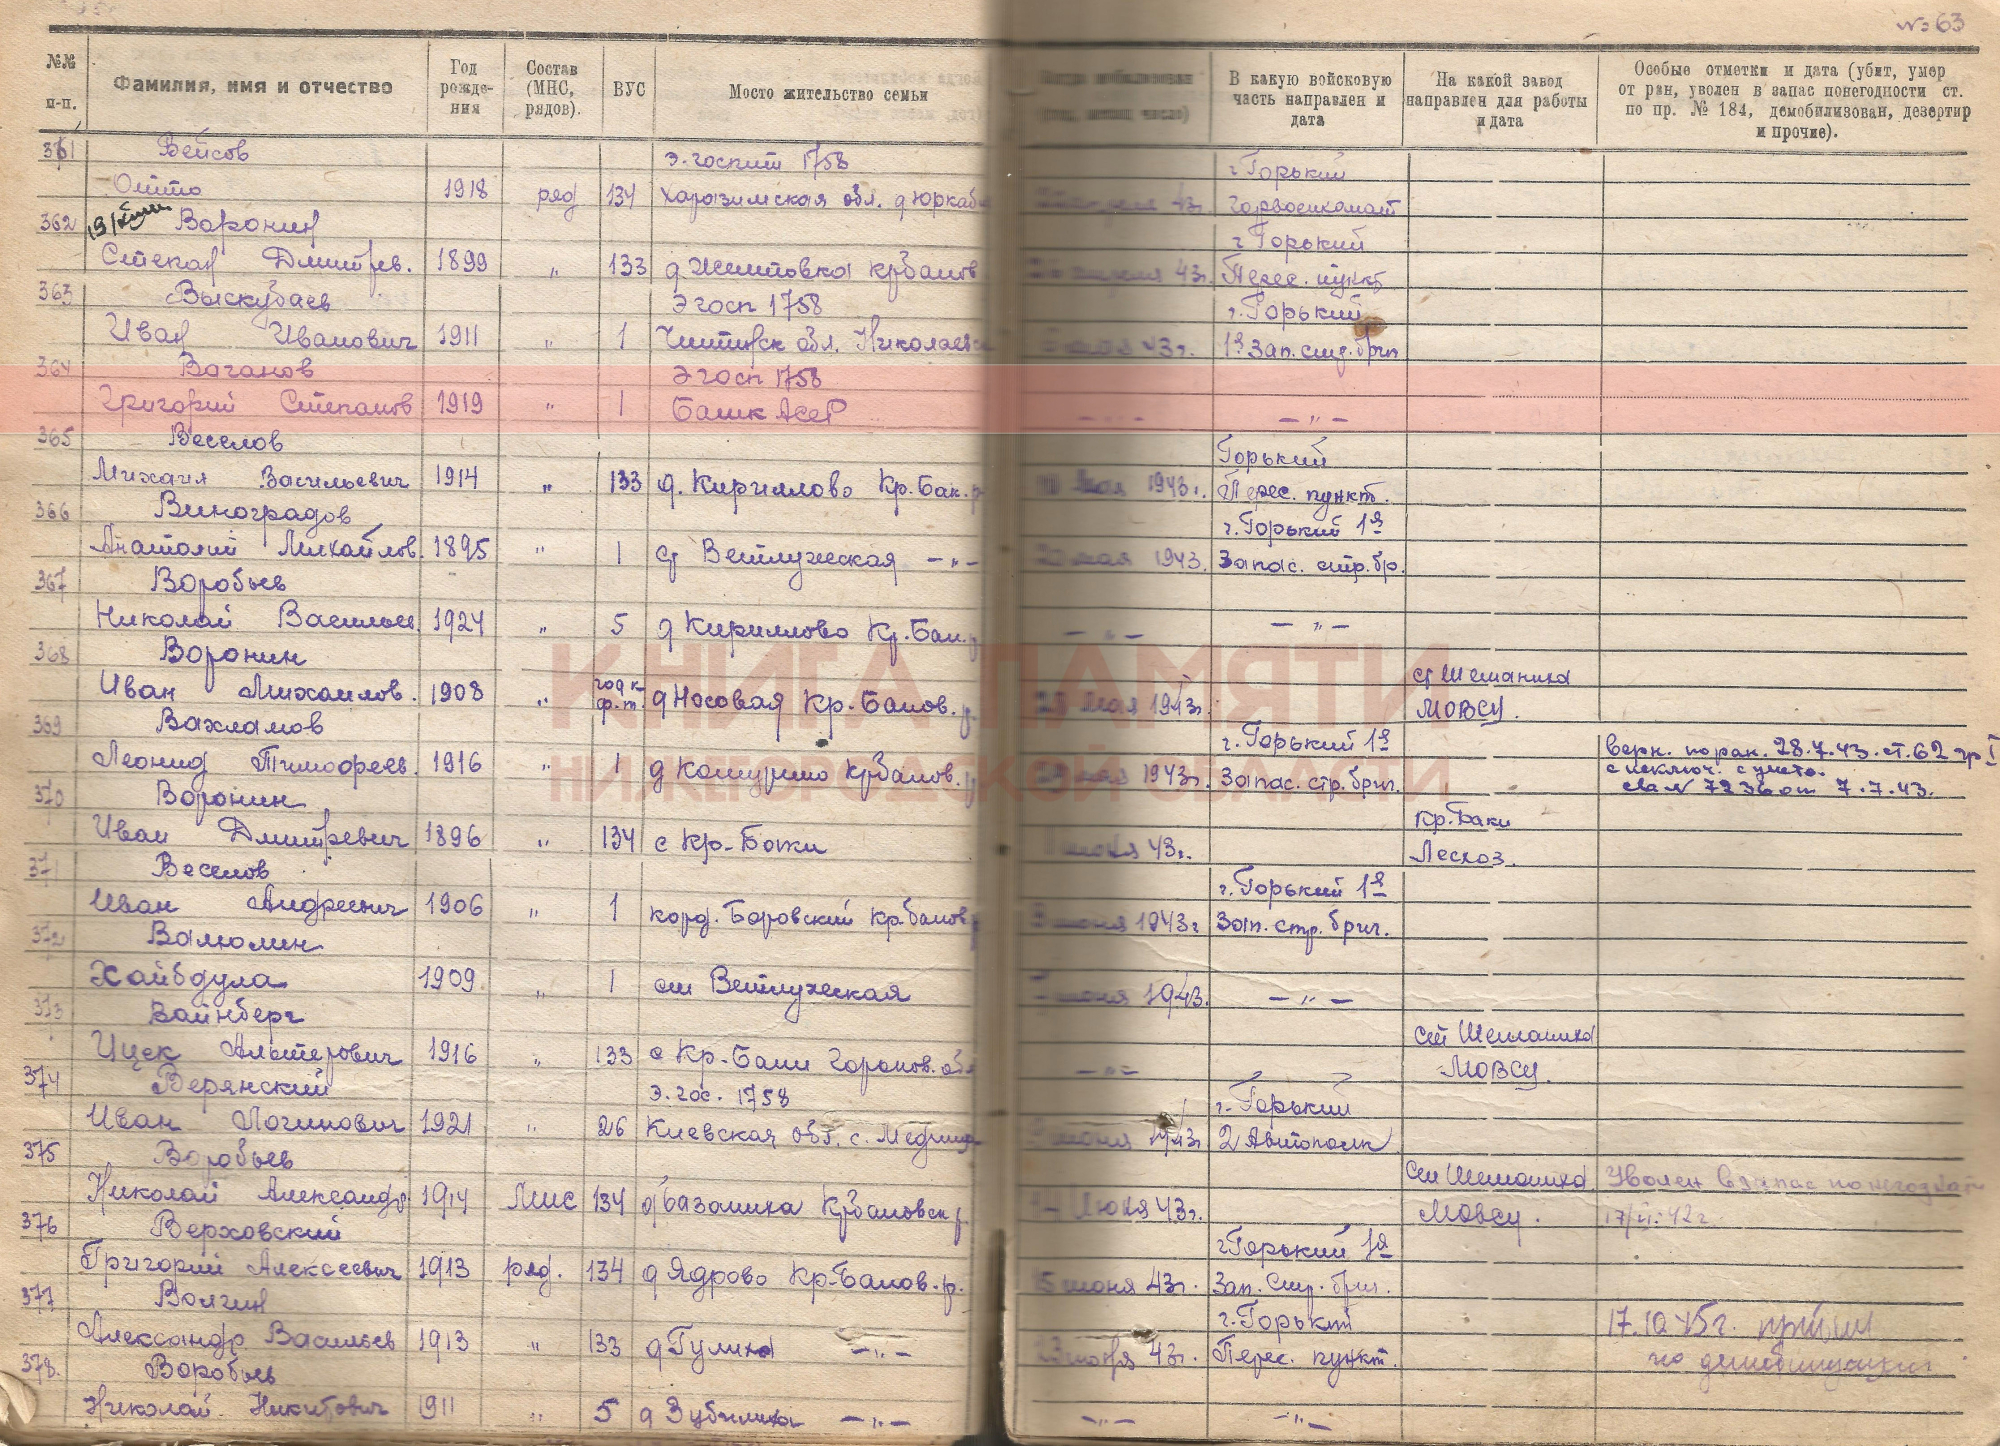 № 63
№№ п-п.
Фамилия, имя и отчество
Год рожде- ния
Состав (МНС, рядов).
ВУС
Мосто жительство семьи
В какую войсковую часть направлен и дата
На какой завод направлен для работы и дата
Особые отметки и дата (убит, умер от ран, уволен в запас понегодности ст. по пр. № 184, демобилизован, дезертир и прочие).
361 Вейсов э. госпит 1758 г. Горький
1918 ряд 134 обл. 43г. горвоенкомат
362 Воронин г Горький
Степан Дмитрев. 1899 „ 133 43г. Перес. пункт
363 Выскубаев Э госп 1758 г. Горький
Иван Иванович 1911 „ 1 обл. 43г. 1й Зап. стр. бриг
364 Ваганов Э госп 1758
Григорий Степанов 1919 „ 1 Башк АССР – „ – – „ –
365 Веселов Горький
Михаил Васильевич 1914 „ 133 д. Кириллово Кр. Бак. р мая 1943г. Перес. пункт.
366 Виноградов г. Горький 1й
Анатолий Михайлов. 1895 „ 1 ст Ветлужская – „ – 20 мая 1943. Запас. стр. бр.
367 Воробьев
Николай Васильев. 1924 „ 5 д Кириллово Кр. Бак. р – „ – – „ –
КНИГА ПАМЯТИ
368 Воронин ст Шеманиха
Иван Михайлов. 1908 „ д Носовая Кр. Баков. р. мая 1943г. МОВСУ.
369 Вахламов г. Горький 1й
Леонид Тимофеев. 1916 „ 1 Кр Баков. р мая 1943г. Запас. стр. бриг.
верн. по ран. 28.7.43. ст. 62 гр I
7.7.43.
НИЖЕГОРОДСКОЙ ОБЛАСТИ
370 Воронин Кр. Баки
Иван Дмитревич 1896 „ 134 с Кр. Баки июня 43г. Лесхоз.
371 Веселов г. Горький 1й
Иван Андреевич 1906 „ 1 корд. Боровский Кр. баков р июня 1943г Зап. стр. бриг.
372 Валюлин
Хайбдула 1909 „ 1 ст Ветлужская июня 1943. – „ –
373 Вайнберг ст Шеманиха
Ицек Альтерович 1916 „ 133 с Кр. Баки – „ – МОВСУ.
374 Верянский э. гос. 1758 г. Горький
Иван Логинович 1921 „ 26 Киевская обл. с. июня 1943г 2 Автополк
375 Воробьев ст Шеманиха Уволен в запас по негодност
Николай Александр. 1914 Мнс 134 Кр Баковск р. 14 июня 43г. Мовсу.
376 Верховский г Горький 1й
Григорий Алексеевич 1913 ряд. 134 д Ядрово Кр. Баков. р. 15 июня 43г. Зап. Стр. бриг.
377 Волгин г. Горький 17.10.45г. прибыл
Александр Васильев 1913 „ 133 – „ – 23 июня 43г. Перес. пункт. по демобилизации
378. Воробьев
Николай Никитович 1911 „ 5 д Зубилиха – „ – – „ – – „ –